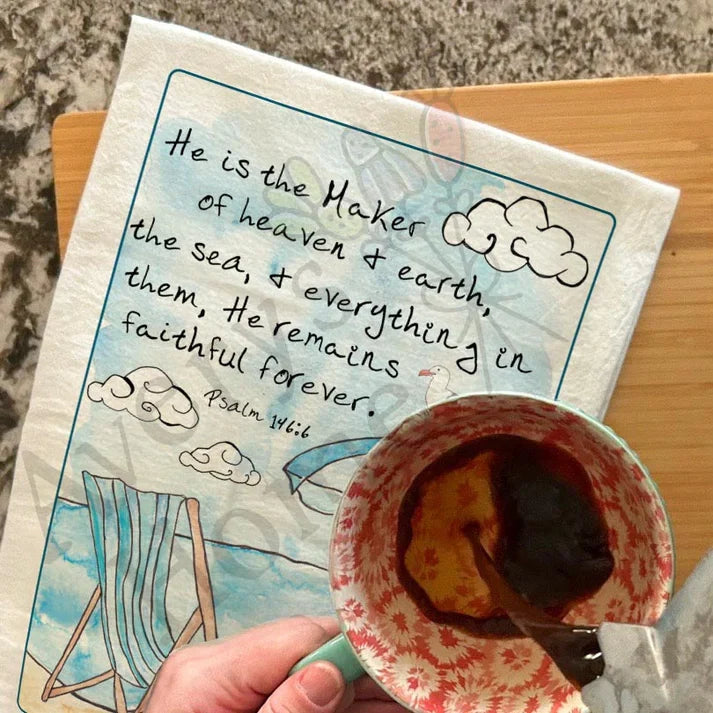 He is the Maker
of heaven & earth,
the sea, & everything in
them, He remains
faithful forever.
Psalm 146:6
Avery's
Home